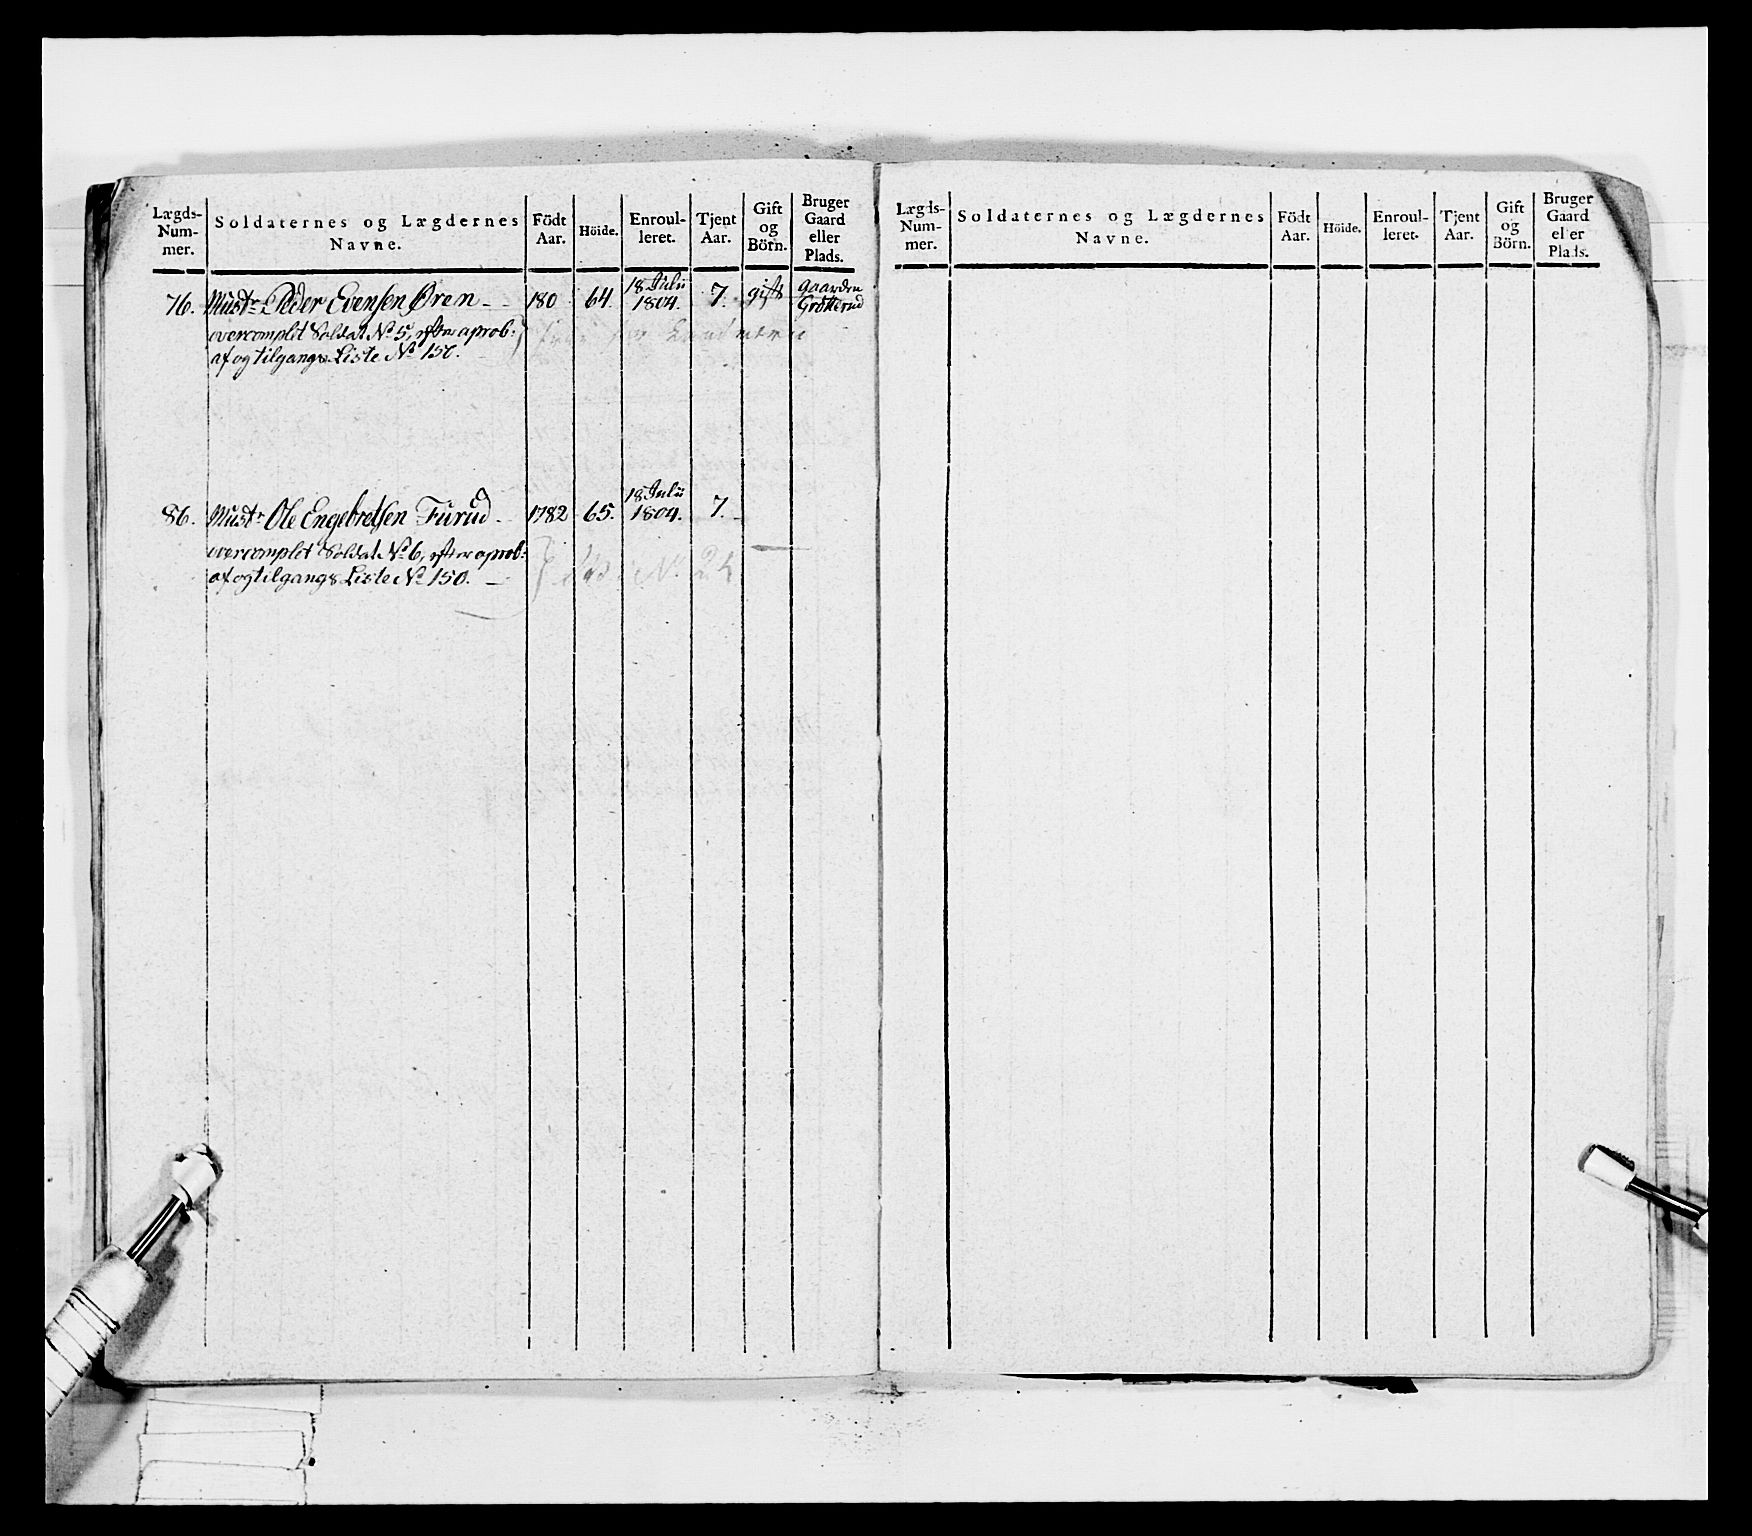 Lægds-
Num-
mer.
Soldaternes og Lægdernes
Navne.
Födt
Aar.
Höide.
Enroul-
leret.
Tjent
Aar.
Gift
og
Börn.
Bruger
Gaard
eller
Plads.
76. Must. Peder Evensen Øren - 180 64. 18 Julii 1804. 7. gift gaarden Grötterud
overcomplet Soldat No 5, efter aprob:
af og tilgangs Liste No 150.
86. Must. Ole Engebretsen Furud - 1782 65. 18 Julii 1804. 7. -
overcomplet Soldat No 6, efter aprob:
af og tilgangs Liste No 150. -
No 24
Lægds-
Num-
mer.
Soldaternes og Lægdernes
Navne.
Födt
Aar.
Höide.
Enroul-
leret.
Tjent
Aar.
Gift
og
Börn.
Bruger
Gaard
eller
Plads.